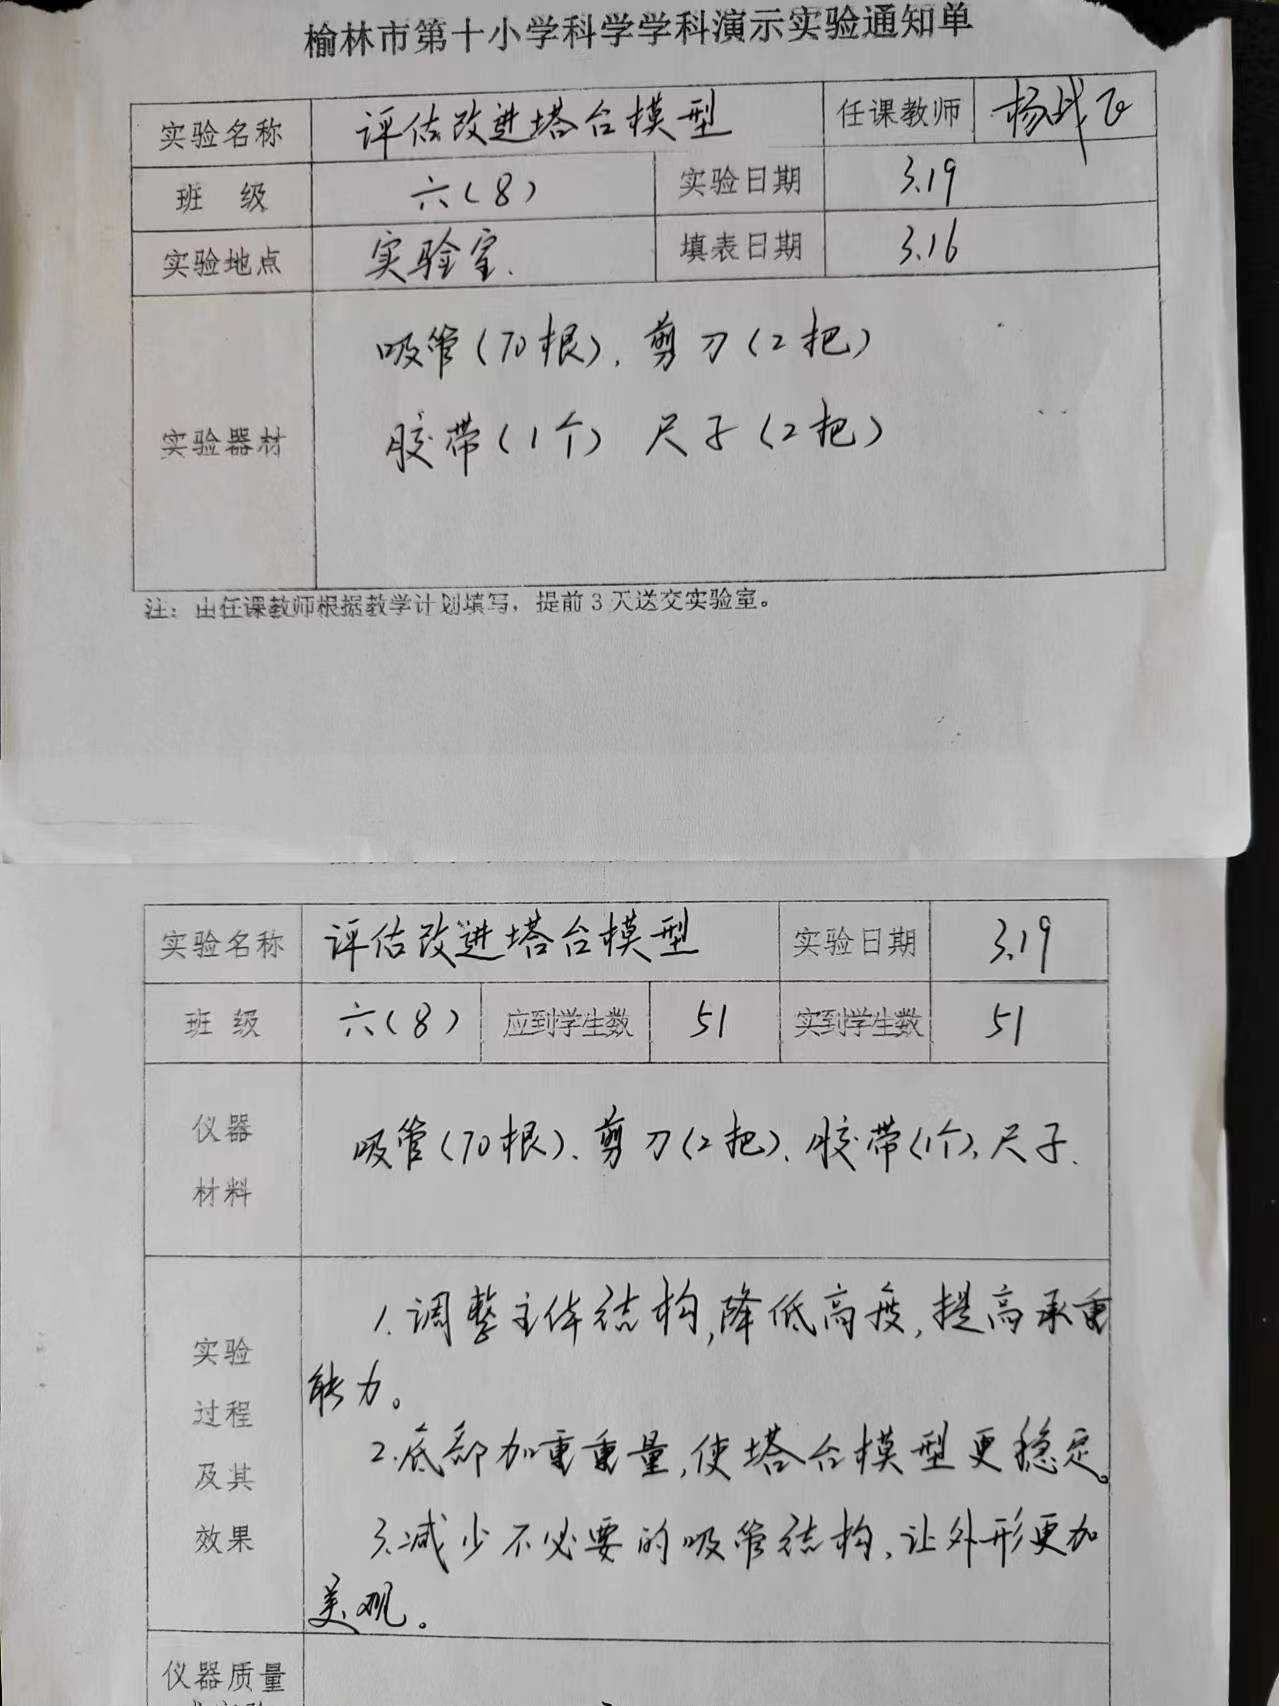 榆林市第十小学科学学科演示实验通知单
实验名称 评估改进塔台模型 任课教师 杨战飞
班 级 六(8) 实验日期 3.19
实验地点 实验室. 填表日期 3.16
实验器材
吸管(70根)、剪刀(2把)
胶带(1个) 尺子(2把)
注：由任课教师根据教学计划填写，提前3天送交实验室。
实验名称 评估改进塔台模型 实验日期 3.19
班 级 六(8) 应到学生数 51 实到学生数 51
仪器
材料
吸管(70根)、剪刀(2把)、胶带(1个)、尺子.
实验
过程
及其
效果
1.调整主体结构,降低高度,提高承重
能力。
2.底部加重重量,使塔台模型更稳定。
3.减少不必要的吸管结构,让外形更加
美观。
仪器质量